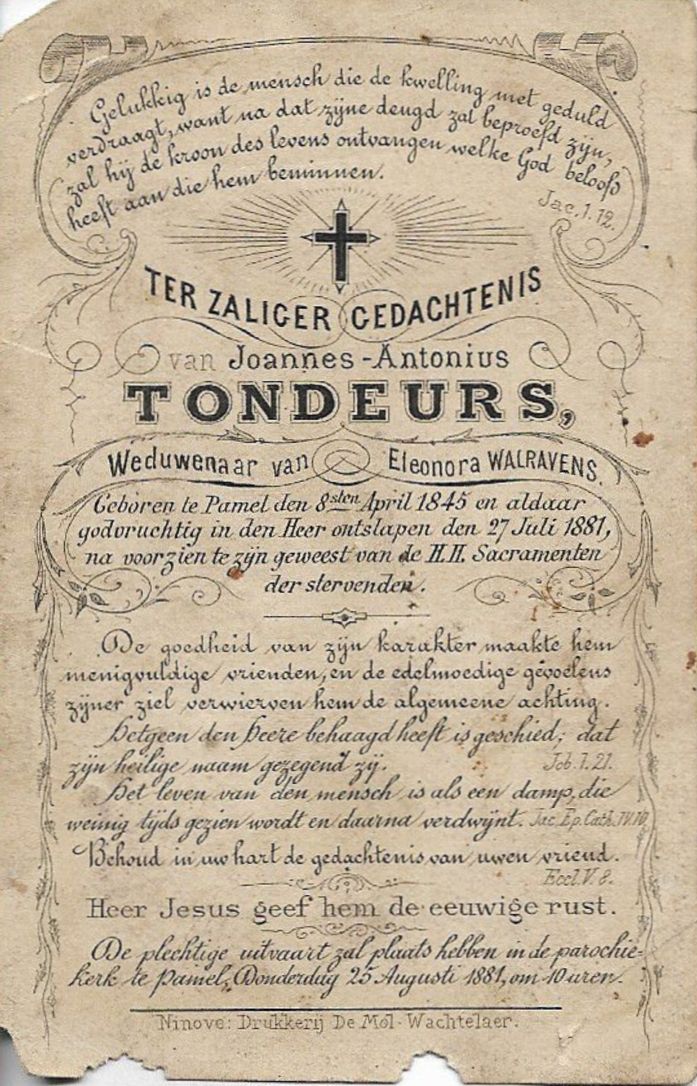 Gelukkig is de mensch die de kwelling met geduld
verdraagt, want na dat zijne deugd zal beproefd zijn,
zal hij de kroon des levens ontvangen welke God beloofd
heeft aan die hem beminnen.
Jac. 1. 12.
TER ZALIGER GEDACHTENIS
van Joannes-Antonius
TONDEURS,
Weduwenaar van Eleonora WALRAVENS.
Geboren te Pamel den 8sten April 1845 en aldaar
godvruchtig in den Heer ontslapen den 27 Juli 1881,
na voorzien te zijn geweest van de H.H. Sacramenten
der stervenden.
De goedheid van zijn karakter maakte hem
menigvuldige vrienden, en de edelmoedige gevoelens
zijner ziel verwierven hem de algemeene achting.
Hetgeen den Heere behaagd heeft is geschied; dat
zijn heilige naam gezegend zij. Job. 1. 21.
Het leven van den mensch is als een damp, die
weinig tijds gezien wordt en daarna verdwijnt. Jac. Ep. Cath. IV.
Behoud in uw hart de gedachtenis van uwen vriend.
Eccl. V. 8.
Heer Jesus geef hem de eeuwige rust.
De plechtige uitvaart zal plaats hebben in de parochie-
kerk te Pamel, Donderdag 25 Augusti 1881, om 10 uren.
Ninove: Drukkerij De Mol-Wachtelaer.